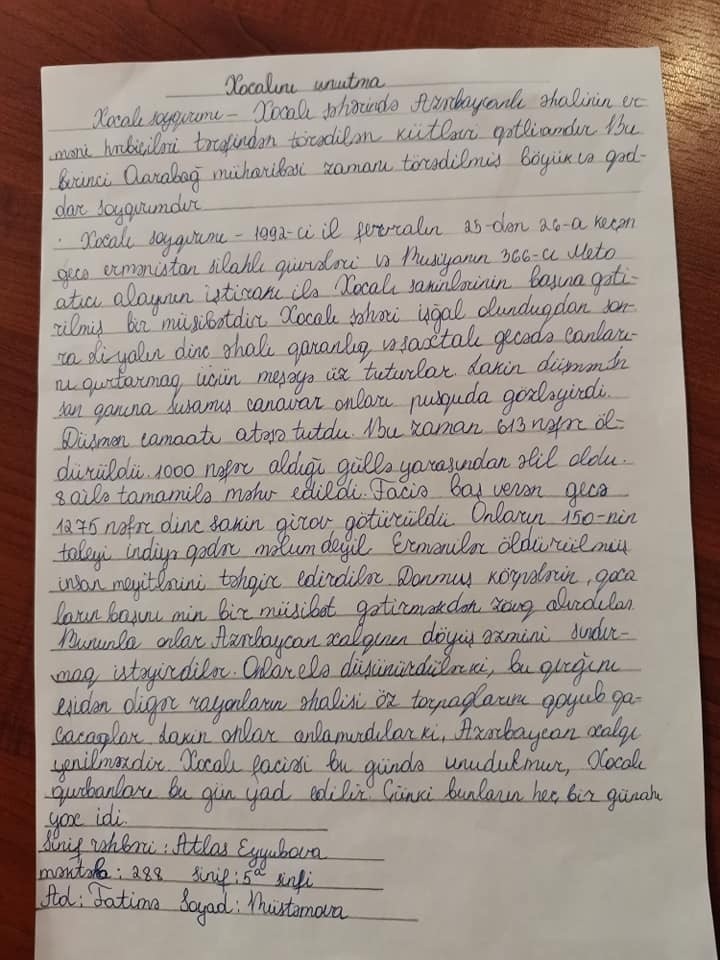 Xocalını unutma
Xocalı soyqırımı – Xocalı şəhərində Azərbaycanlı əhalinin er-
məni hərbiçiləri tərəfindən törədilən kütləvi qətliamdır Bu
birinci Qarabağ müharibəsi zamanı törədilmiş böyük və qəd-
dar soyqırımdır
Xocalı soyqırımı – 1992-ci il fevralın 25-dən 26-a keçən
gecə ermənistan silahlı qüvvələri və Rusiyanın 366-cı Moto
atıcı alayının iştirakı ilə Xocalı sakinlərinin başına gəti-
rilmiş bir müsibətdir Xocalı şəhəri işğal olunduqdan son-
ra əliyalın dinc əhali qaranlıq və şaxtalı gecədə canları-
nı qurtarmaq üçün meşəyə üz tuturlar. Lakin düşmən in
san qanına susamış canavar onları pusquda gözləyirdi.
Düşmən camaatı atəşə tutdu. Bu zaman 613 nəfər öl-
dürüldü. 1000 nəfər aldığı güllə yarasından əlil oldu.
8 ailə tamamilə məhv edildi. Faciə baş verən gecə
1275 nəfər dinc sakin girov götürüldü Onların 150-nin
taleyi indiyə qədər məlum deyil Ermənilər öldürülmüş
insan meyitlərini təhqir edirdilər Donmuş körpələrin, qoca
ların başını min bir müsibət gətirməkdən zövq alırdılar
Bununla onlar Azərbaycan xalqının döyüş əzmini sındır-
maq istəyirdilər. Onlar elə düşünürdülər ki, bu qırğını
eşidən digər rayonların əhalisi öz torpaqlarını qoyub qa-
çacaqlar. Lakin onlar anlamırdılar ki, Azərbaycan xalqı
yenilməzdir. Xocalı faciəsi bu gündə unudulmur, Xocalı
qurbanları bu gün yad edilir. Çünki bunların heç bir günahı
yox idi.
Sinif rəhbəri: Atlas Eyyubova
məktəb: 288 sinif: 5ᵃ sinfi
Ad: Fatimə Soyad: Rüstəmova